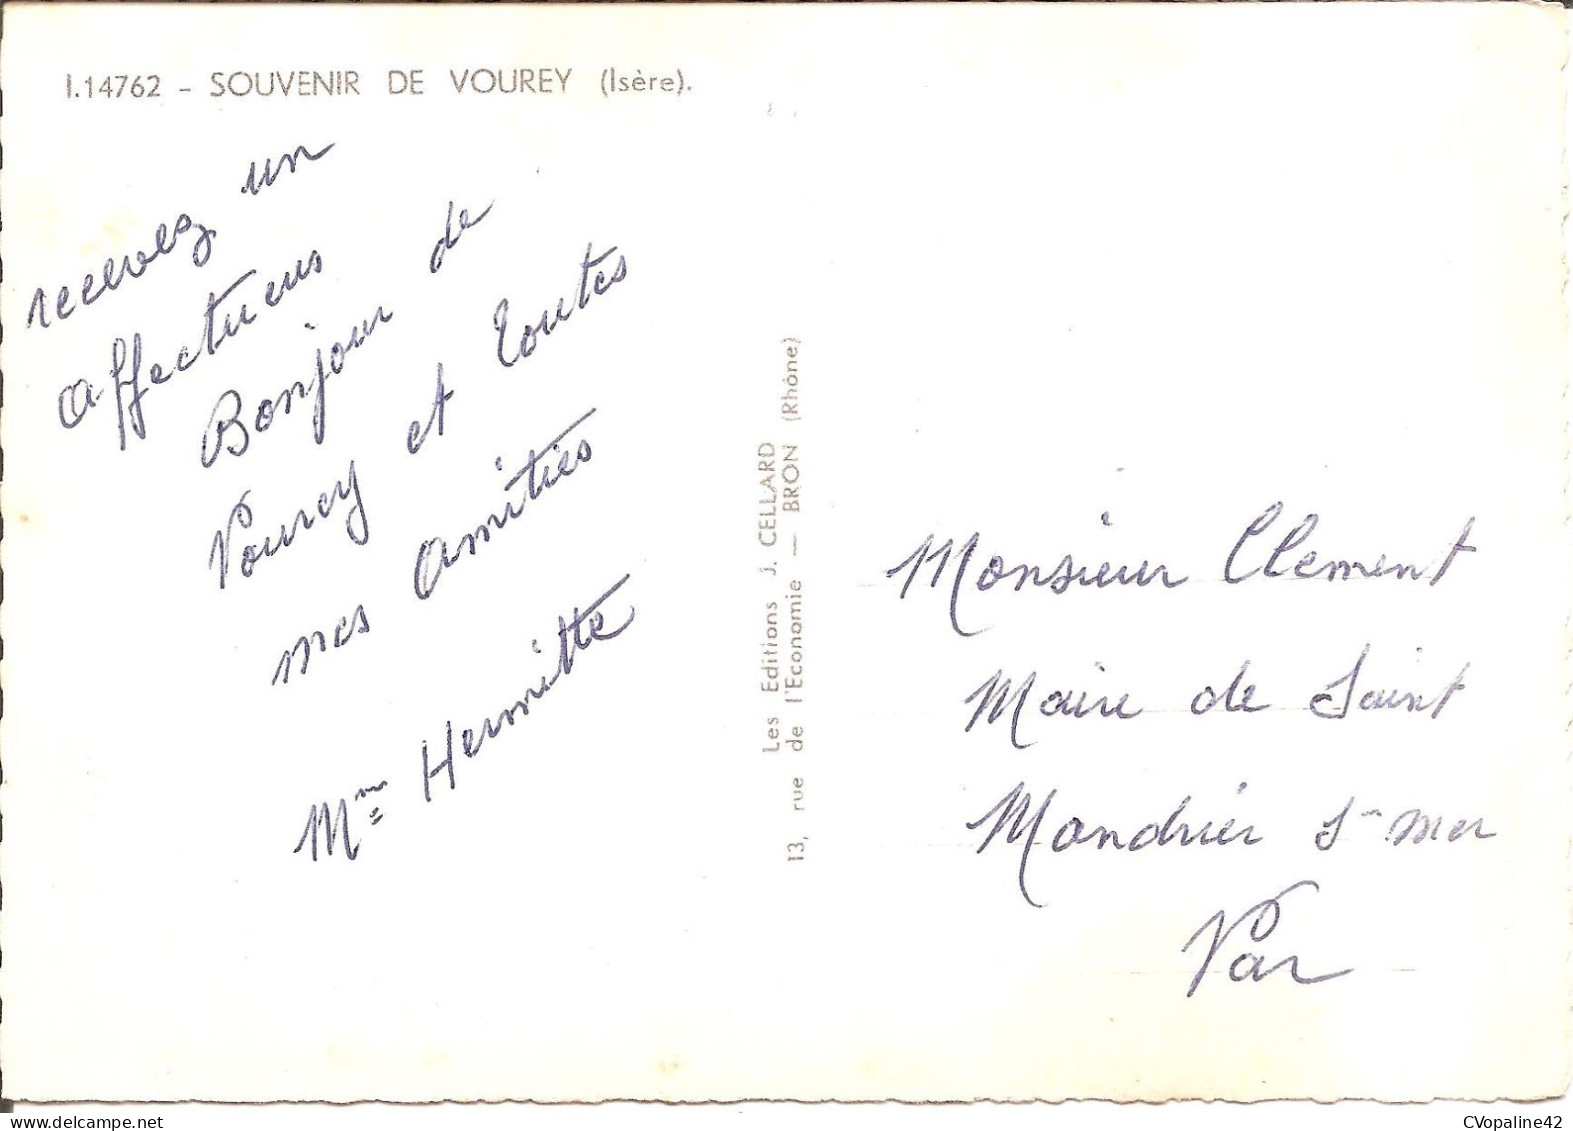 I.14762 - SOUVENIR DE VOUREY (Isère).
recevez un
affectueus
Bonjour de
Vourey et toutes
mes amitiés
Mme Hermitte
Les Editions J. CELLARD
13, rue de l'Economie — BRON (Rhône)
Monsieur Clement
Maire de Saint
Mandrier s- mer
Var
CVopaline42